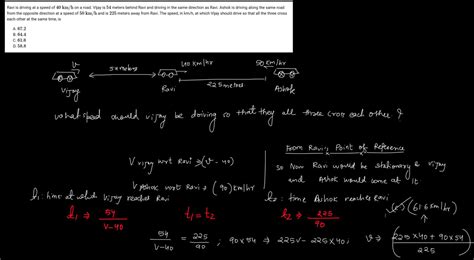 Ravi is driving at a speed of 40 km/h on a road. Vijay is 54 meters behind Ravi and driving in the same direction as Ravi. Ashok is driving along the same road
from the opposite direction at a speed of 50 km/h and is 225 meters away from Ravi. The speed, in km/h, at which Vijay should drive so that all the three cross
each other at the same time, is
A. 67.2
B. 64.4
C. 61.6
D. 58.8
v 40 km/hr 50 km/hr
54 meters
Vijay Ravi 225 meters Ashok
what speed would vijay be driving so that they all three cross each other ?
From Ravi's Point of Reference
V vijay wrt Ravi → (v - 40)
so Now Ravi would be stationary & vijay
and Ashok would come at it
V Ashok wrt Ravi → (90) km/hr
t₁ : time at which vijay reaches Ravi
t₂ : time Ashok reaches Ravi
(c) (61.6 km/hr)
t₁ → 54 / v-40 t₁ = t₂ t₂ → 225 / 90
54 / v-40 = 225 / 90 ; 90x54 → 225v - 225x40 ; v → (225x40 + 90x54 / 225)